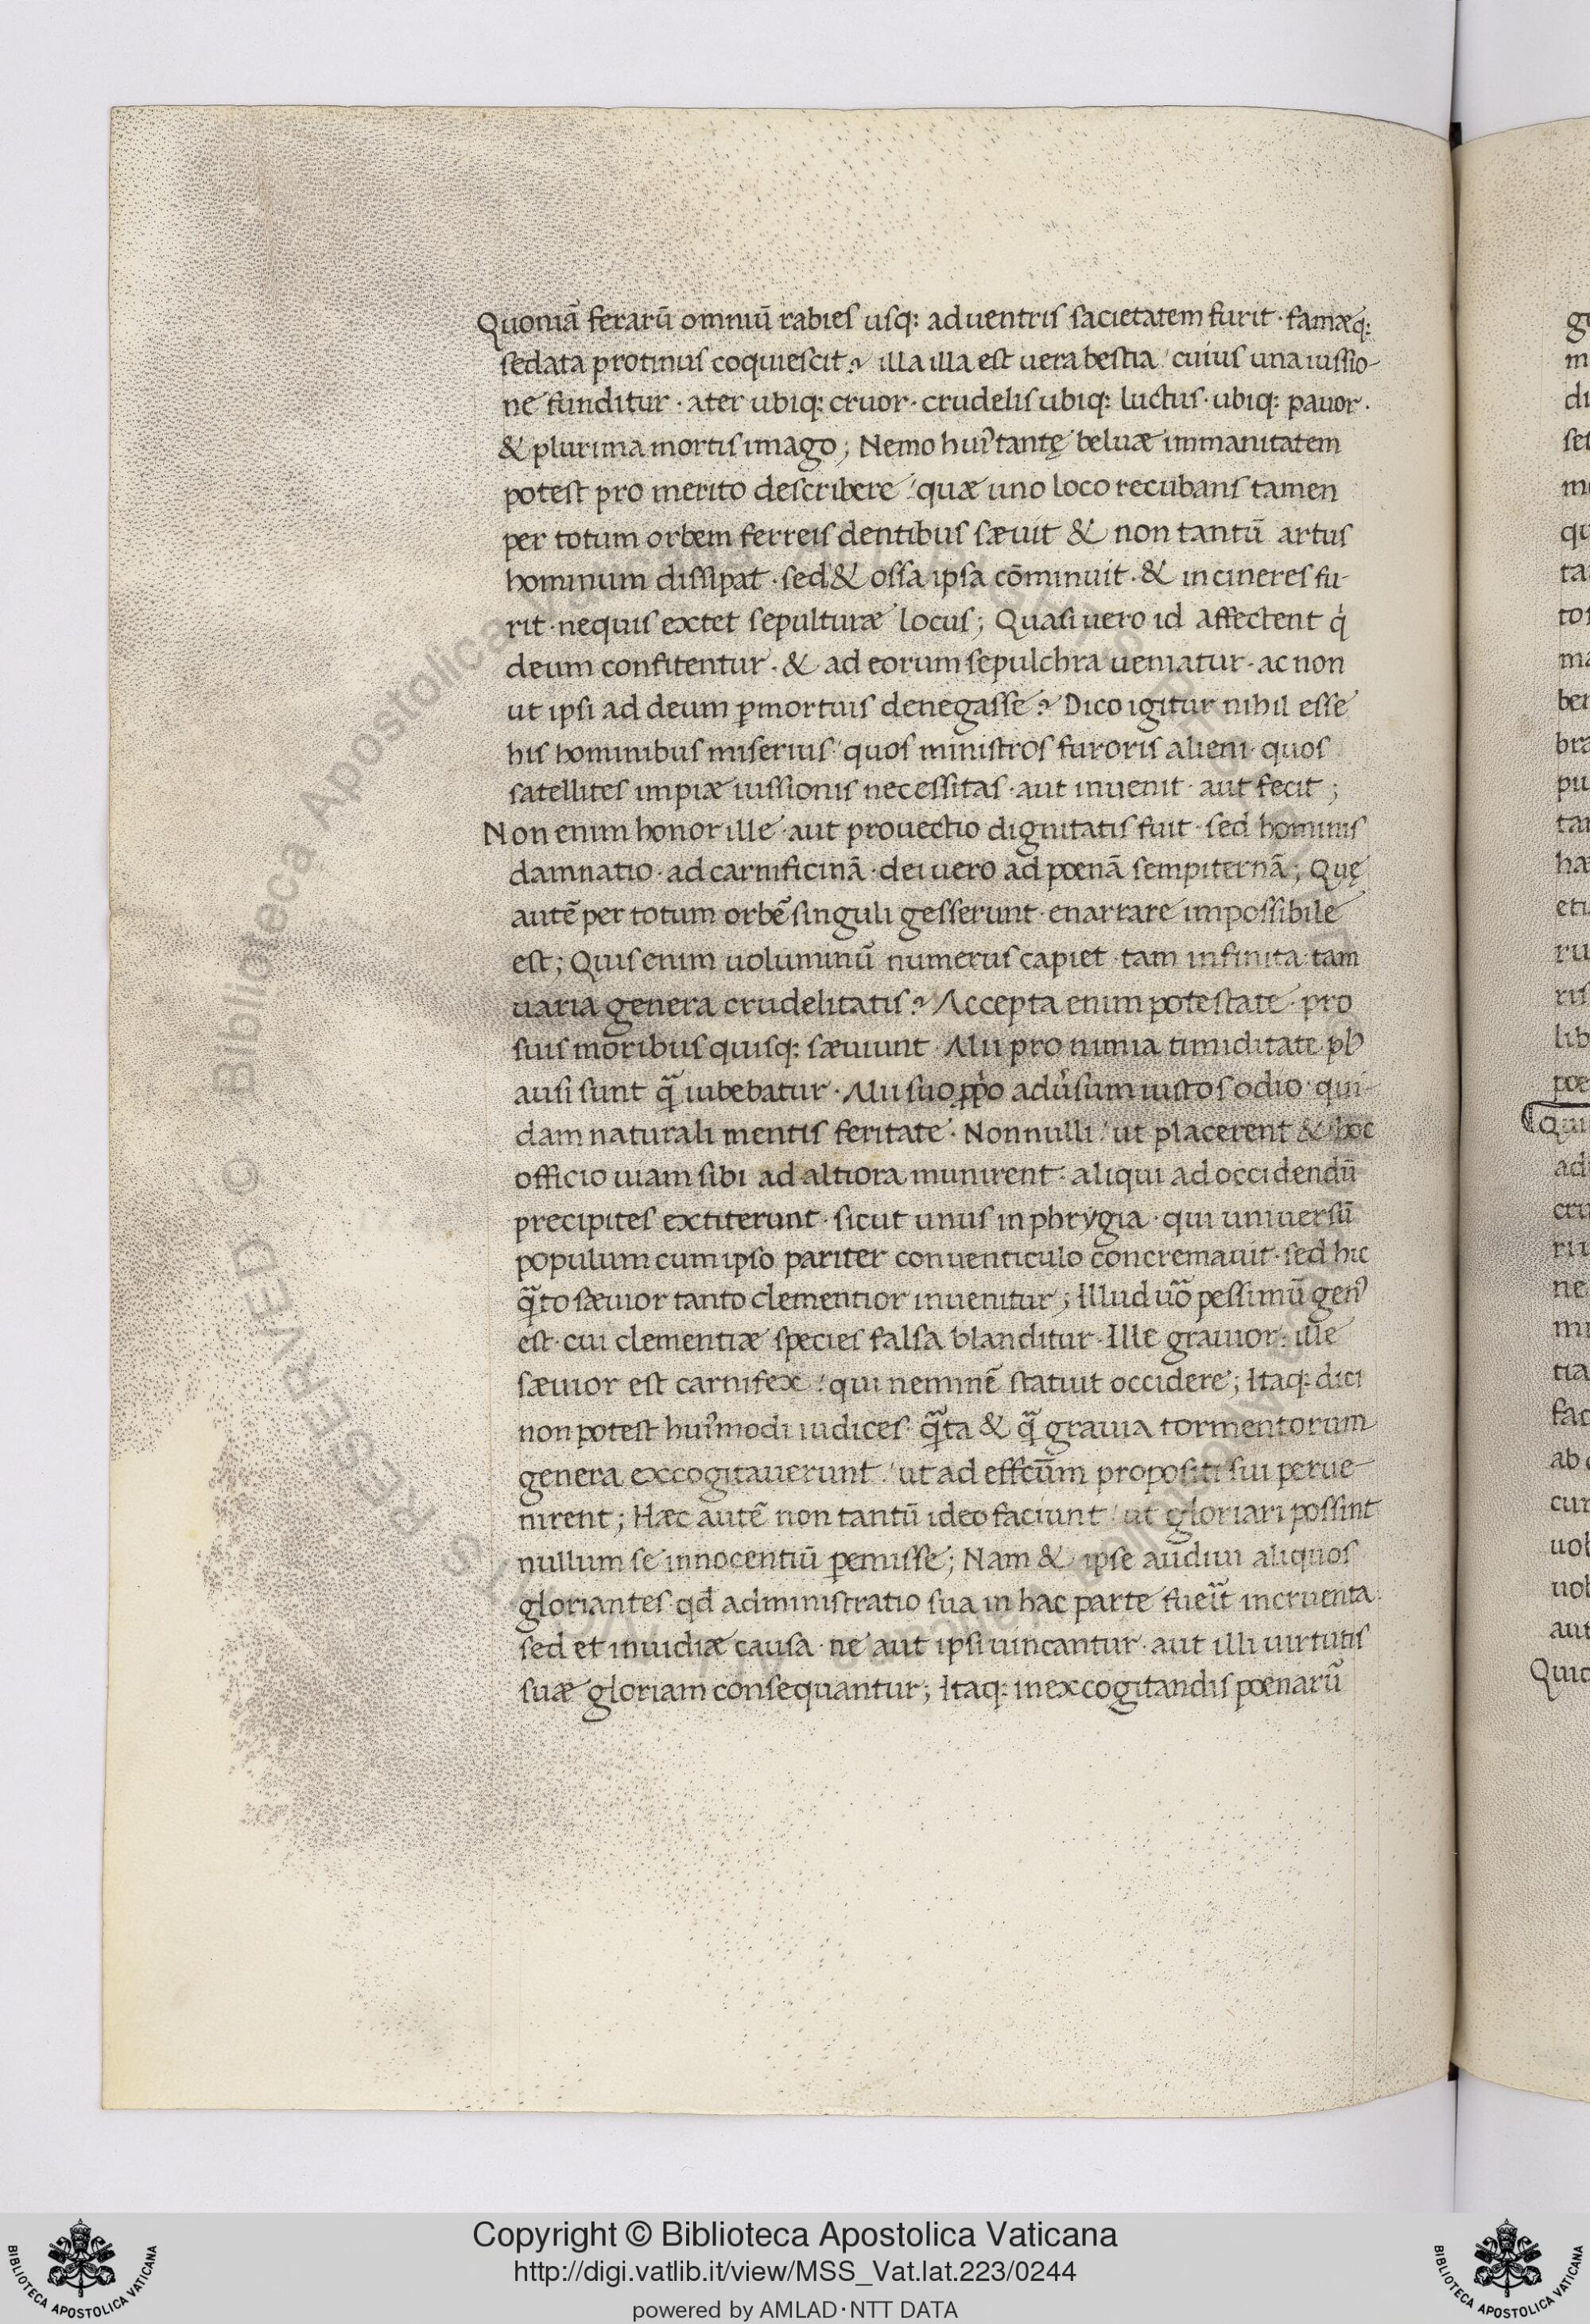 Quoniā ferarū omniū rabies usq: ad uentris sacietatem furit · famæq:
sedata protinus coquiescit? illa illa est uera bestia / cuius una iussio-
ne funditur · ater ubiq: cruor · crudelis ubiq: luctus · ubiq: pauor ·
& plurima mortis imago; Nemo huiꝰ tantę beluæ immanitatem
potest pro merito describere / quæ uno loco recubans tamen
per totum orbem ferreis dentibus sæuit & non tantū artus
hominum dissipat · sed & ossa ipsa cōminuit · & in cineres fu-
rit · nequis extet sepulturæ locus; Quasi uero id affectent q̇
deum confitentur · & ad eorum sepulchra ueniatur · ac non
ut ipsi ad deum ꝑmortuis denegasse? Dico igitur nihil esse
his hominibus miserius / quos ministros furoris alieni · quos
satellites impiæ iussionis necessitas · aut inuenit · aut fecit;
Non enim honor ille · aut prouectio dignitatis fuit · sed hominis
damnatio · ad carnificinā · dei uero ad poenā sempiternā; Quę
autē per totum orbē singuli gesserunt · enarrare impossibile
est; Quis enim uoluminū numerus capiet · tam infinita · tam
uaria genera crudelitatis? Accepta enim potestate · pro
suis moribus quisq: sæuiunt · Alii pro nimia timiditate plꝰ
ausi sunt q̄ iubebatur · Alii suo ꝓṗo adūsum iustos odio · qui-
dam naturali mentis feritate · Nonnulli / ut placerent & hoc
officio uiam sibi ad altiora munirent · aliqui ad occidendū
precipites extiterunt · sicut unus in phrygia · qui uniuersū
populum cum ipso pariter conuenticulo concremauit · sed hic
q̄to sæuior tanto clementior inuenitur; Illud ūo pessimū genꝰ
est · cui clementiæ species falsa blanditur · Ille grauior · ille
sæuior est carnifex / qui neminē statuit occidere; Itaq: dici
non potest huiꝰmodi iudices · q̄ta & q̄ grauia tormentorum
genera excogitauerunt / ut ad effcūm propositi sui perue-
nirent; Hæc autē non tantū ideo faciunt / ut gloriari possint
nullum se innocentiū ꝑemisse; Nam & ipse audiui aliquos
gloriantes · qđ administratio sua in hac parte fueīt incruenta ·
sed et inuidiæ causa · ne aut ipsi uincantur · aut illi uirtutis
suæ gloriam consequantur; Itaq: in excogitandis poenarū
Copyright © Biblioteca Apostolica Vaticana
http://digi.vatlib.it/view/MSS_Vat.lat.223/0244
powered by AMLAD·NTT DATA